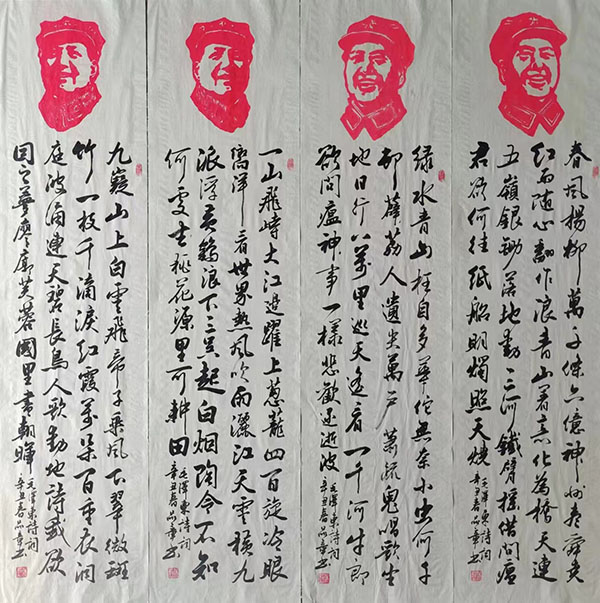 春風楊柳萬千條六億神州盡舜堯
紅雨随心翻作浪青山著意化為橋天連
五嶺銀鋤落地動三河鐵臂搖借問瘟
君欲何往紙船明燭照天燒
毛澤東詩詞
辛丑春品章书
綠水青山枉自多華佗無奈小虫何千
邨薜荔人遺矢萬户蕭疏鬼唱歌坐
地日行八萬里巡天遙看一千河牛郎
欲問瘟神事一樣悲歡逐逝波
毛澤東詩詞
辛丑春品章书
一山飛峙大江邊躍上蔥蘢四百旋冷眼
向洋看世界熱風吹雨灑江天雲橫九
派浮黃鶴浪下三吳起白烟陶令不知
何處去桃花源里可耕田
毛澤東詩詞
辛丑春品章书
九嶷山上白雲飛帝子乘風下翠微斑
竹一枝千滴淚紅霞萬朵百重衣洞
庭波涌連天碧長島人歌動地詩我欲
因之夢寥廓芙蓉國里盡朝暉
毛澤東詩詞
辛丑春品章书